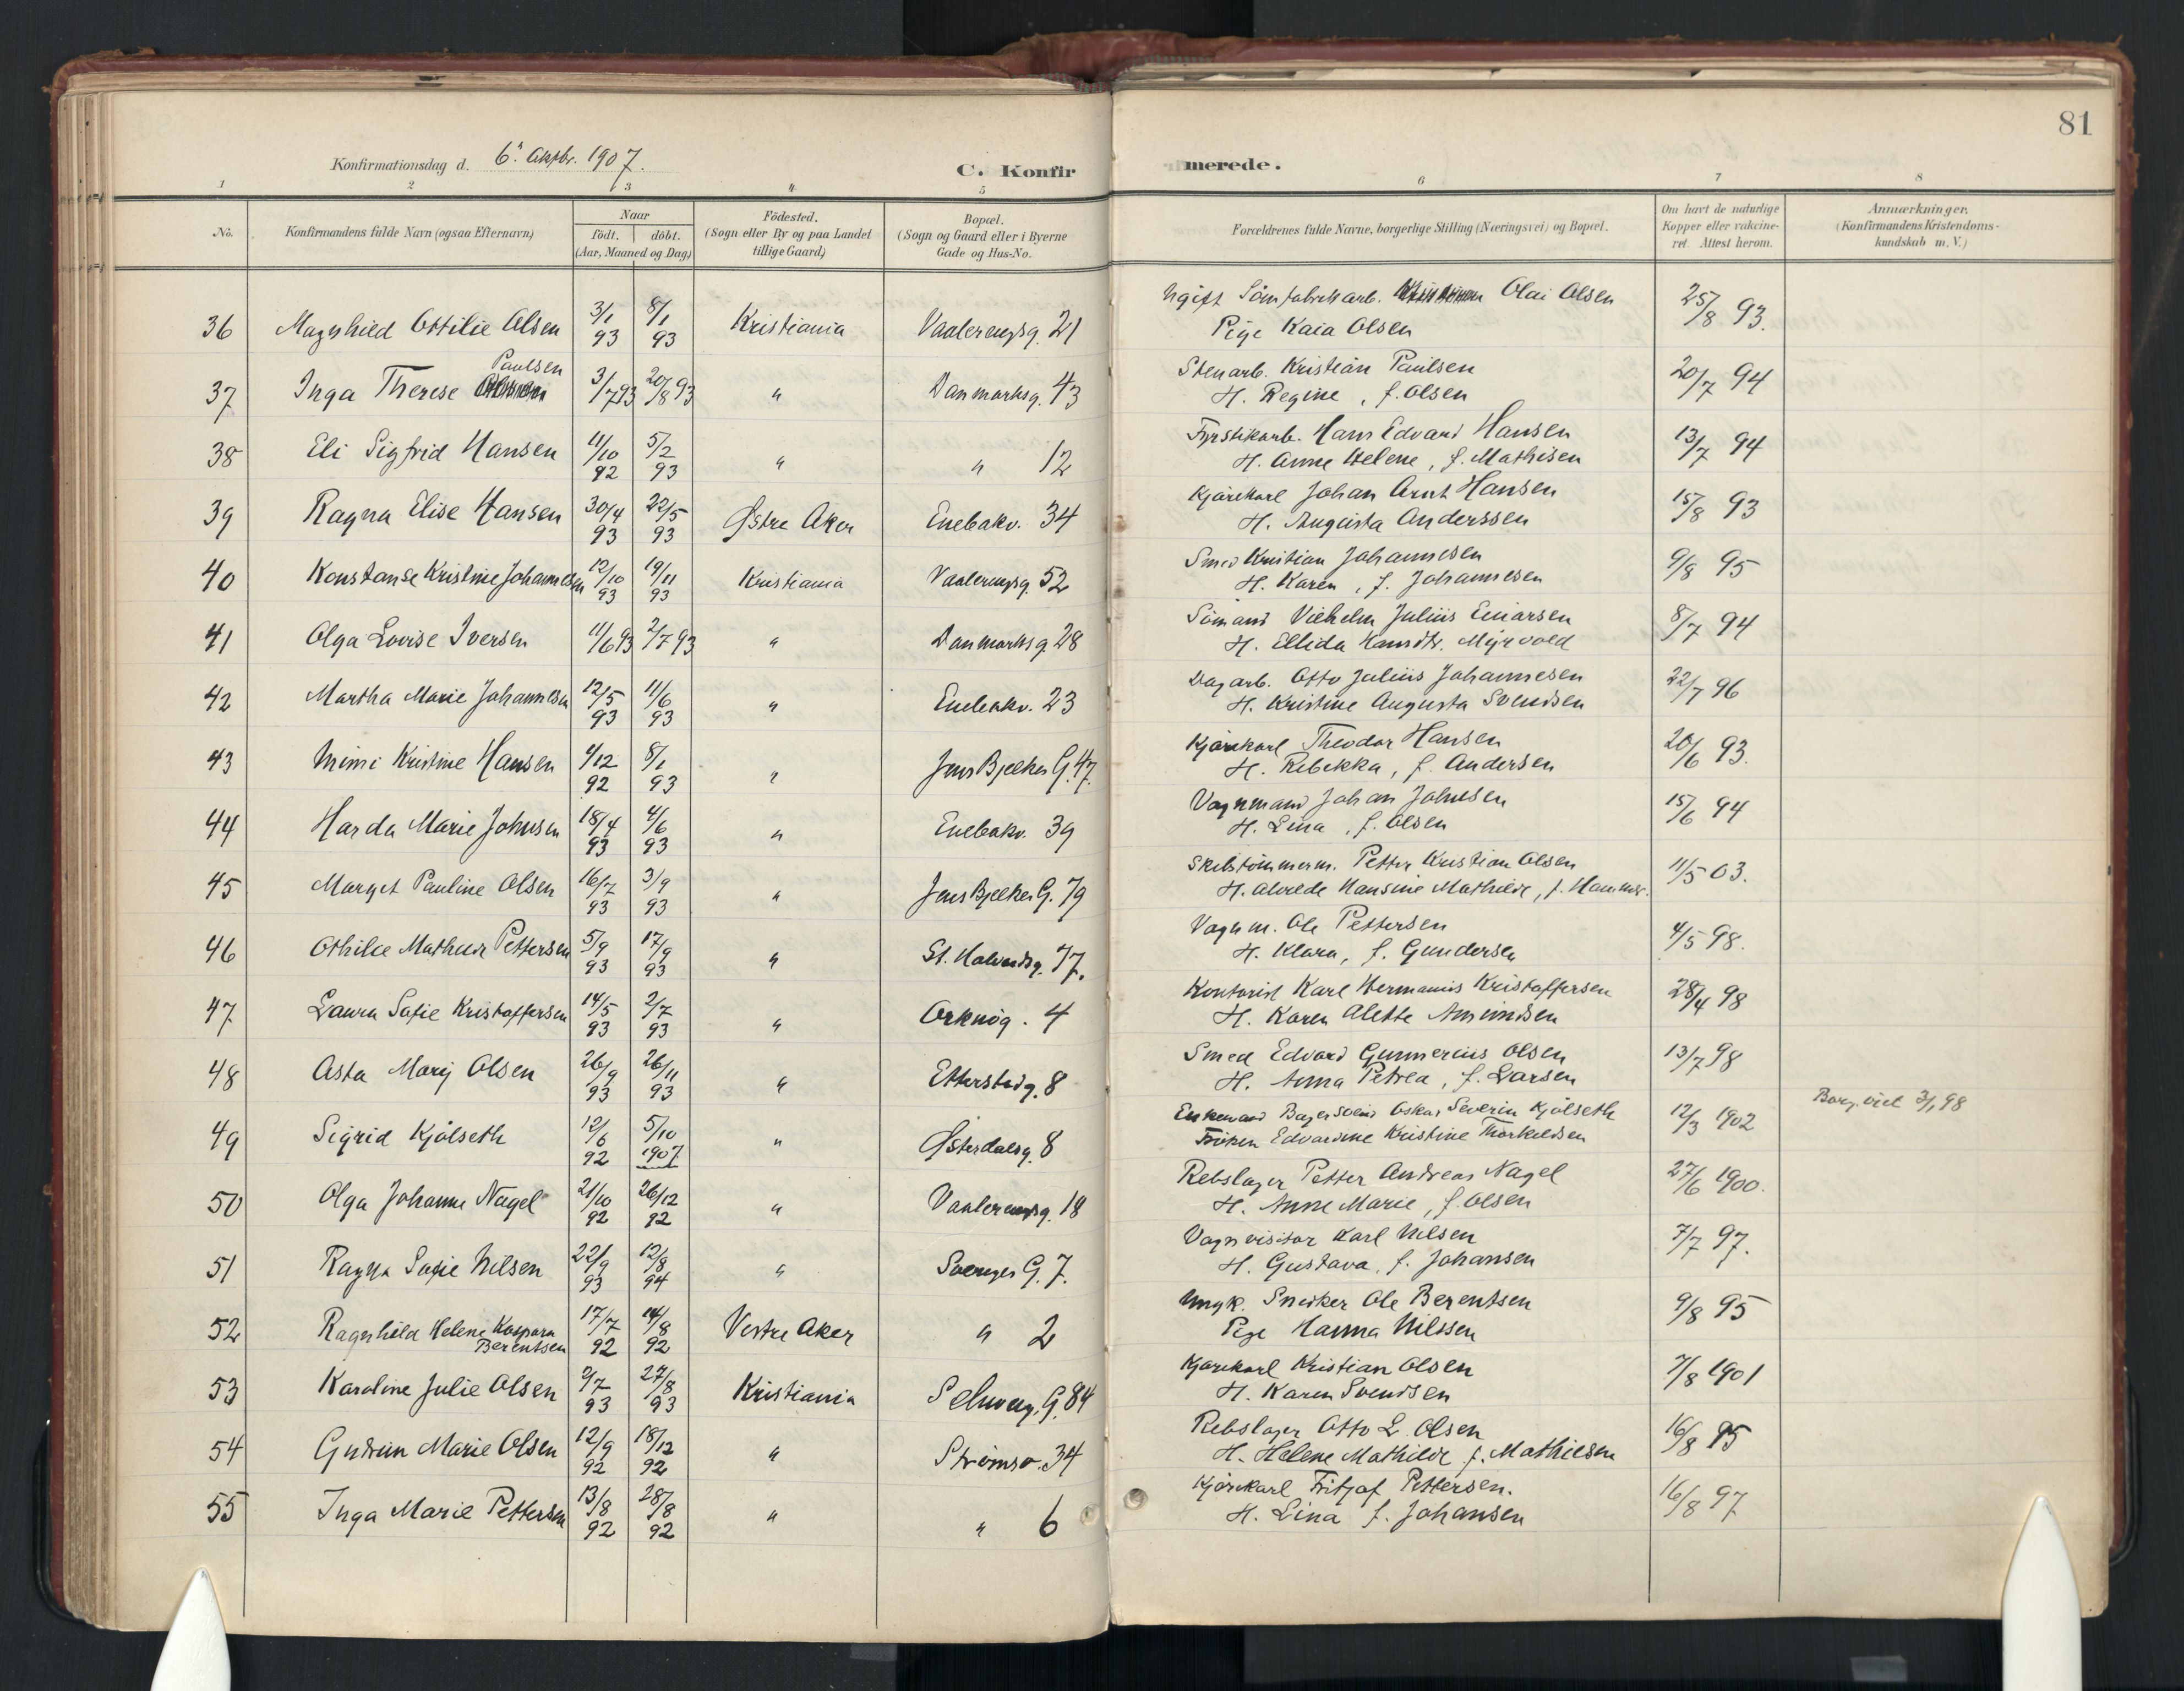 81
Konfirmationsdag d. 6' Oktbr. 1907.
C. Konfirmerede.
1 2 3 4 5 6 7 8
No. | Konfirmandens fulde Navn (ogsaa Efternavn) | Naar födt. döbt. (Aar, Maaned og Dag) | Födested. (Sogn eller By og paa Landet tillige Gaard) | Bopæl. (Sogn og Gaard eller i Byerne Gade og Hus-No. | Forældrenes fulde Navne, borgerlige Stilling (Næringsvei) og Bopæl. | Om havt de naturlige Kopper eller vakcineret. Attest herom. | Anmærkninger. (Konfirmandens Kristendomskundskab m. V.)
36 Magnhild Ottilie Olsen 3/1 93 8/1 93 Kristiania Vaalerengsg. 21 Ugift Sömfabrikarb. Olai Olsen 25/8 93.
Pige Kaia Olsen
37 Inga Therese Paulsen 3/7 93 20/8 93 " Danmarksg. 43 Stenarb. Kristian Paulsen 20/7 94
H. Regine, f. Olsen
38 Eli Sigfrid Hansen 11/10 92 5/2 93 " " 12 Fyrstikarb. Hans Edvard Hansen 13/7 94
H. Anne Helene, f. Mathisen
39 Ragna Elise Hansen 30/4 93 22/5 93 Østre Aker Enebakv. 34 Kjörekarl Johan Arnt Hansen 15/8 93
H. Augusta Anderssen
40 Konstanse Kristine Johannesen 12/10 93 19/11 93 Kristiania Vaalerengsg. 52 Smed Kristian Johannesen 9/8 95
H. Karen, f. Johannesen
41 Olga Lovise Iversen 11/6 93 2/7 93 " Danmarksg 28 Sömand Vilhelm Julius Einarsen 8/7 94
H. Ellida Hansdtr. Myrvold
42 Martha Marie Johannesen 12/5 93 11/6 93 " Enebakv. 23 Dagarb. Otto Julius Johannesen 22/7 96
H. Kristine Augusta Svendsen
43 Mimi Kristine Hansen 4/12 92 8/1 93 " Jens Bjelkes G. 47. Kjörekarl Theodor Hansen 20/6 93.
H. Rebekka, f. Andersen
44 Harda Marie Johnsen 18/4 93 4/6 93 " Enebakv. 39 Vognmand Johan Johnsen 15/6 94
H. Lina, f. Olsen
45 Marget Pauline Olsen 16/7 93 3/9 93 " Jens Bjelkes G. 79 Skibstömmerm. Petter Kristian Olsen 11/5 03.
H. Alvilde Hansine Mathilde, f.
46 Othilie Mathilde Pettersen 5/9 93 17/9 93 " St. Halvardsg. 77. Vognm. Ole Pettersen 4/5 98.
H. Klara, f. Gundersen
47 Laura Sofie Kristoffersen 14/5 93 2/7 93 " Orknög. 4 Kontorist Karl Hermanus Kristoffersen 28/4 98
H. Karen Alette Amundsen
48 Asta Mary Olsen 26/9 93 26/11 93 " Etterstadg. 8 Smed Edvard Gunnerius Olsen 13/7 98
H. Anna Petrea, f. Larsen
49 Sigrid Kjölseth 12/6 92 5/10 1907 " Østerdalsg. 8 Enkemand Bagersvend Oskar Severin Kjölseth 12/3 1902 Borg. viet 3/1 98
Fröken Edvardine Kristine Thorkildsen
50 Olga Johanne Nagel 21/10 92 26/12 92 " Vaalerengsg. 18 Rebslager Petter Andreas Nagel 27/6 1900.
H. Anne Marie, f. Olsen
51 Ragna Sofie Nilsen 22/9 93 12/8 94 " Sveriges G. 7. Vognvisitør Karl Nilsen 7/7 97.
H. Gustava, f. Johansen
52 Ragnhild Helene Kaspara Berentsen 17/7 92 14/8 92 Vestre Aker " 2 Ungk. Snedker Ole Berentsen 9/8 95
Pige Hanna Nilssen
53 Karoline Julie Olsen 2/7 93 27/8 93 Kristiania Schweig. G. 84 Kjörekarl Kristian Olsen 7/8 1901
H. Karen Svendsen
54 Gudrun Marie Olsen 12/9 92 18/12 92 " Strömsv. 34 Rebslager Otto L. Olsen 16/8 95
H. Helene Mathilde f. Mathiesen
55 Inga Marie Pettersen 13/8 92 28/8 92 " " 6 Kjörekarl Fritjof Pettersen. 16/8 97
H. Lina f. Johansen